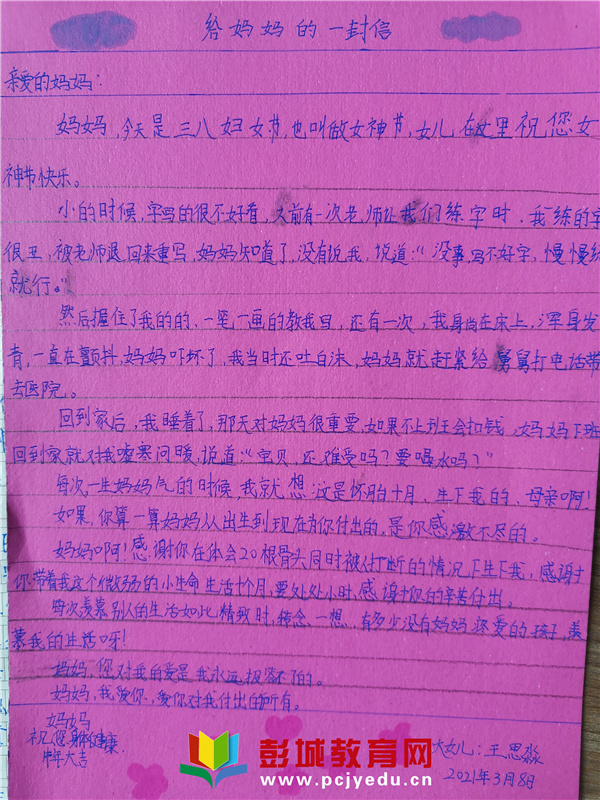 给妈妈的一封信
亲爱的妈妈:
妈妈,今天是三八妇女节,也叫做女神节,女儿在这里祝您女
神节快乐。
小的时候,字写的很不好看,以前有一次老师让我们练字时,我练的字
很丑,被老师退回来重写,妈妈知道了,没有说我,说道:“没事,写不好字,慢慢练
就行。”
然后握住了我的的,一笔一画的教我写,还有一次,我身尚在床上,浑身发
青,一直在颤抖,妈妈吓坏了,我当时还吐白沫,妈妈就赶紧给舅舅打电话带
去医院。
回到家后,我睡着了,那天对妈妈很重要,如果不上班会扣钱,妈妈下班
回到家就对我嘘寒问暖,说道:“宝贝,还难受吗?要喝水吗?”
每次一生妈妈气的时候,我就想:这是怀胎十月、生下我的、母亲啊!
如果,你算一算妈妈从出生到现在为你付出的,是你感激不尽的。
妈妈啊!感谢你在体会20根骨头同时被人打断的情况下生下我,感谢
你带着我这个微弱的小生命生活十个月,要处处小时,感谢你的辛苦付出。
每次羡慕别人的生活如此精致时,转念一想,有多少没有妈妈疼爱的孩子,羡
慕我的生活呀!
妈妈,您对我的爱是我永远报答不了的。
妈妈,我爱你,爱你对我付出的所有。
妈妈
祝您身体健康
牛年大吉
大女儿:王思淼
2021年3月8日
彭城教育网
www.pcjyedu.cn